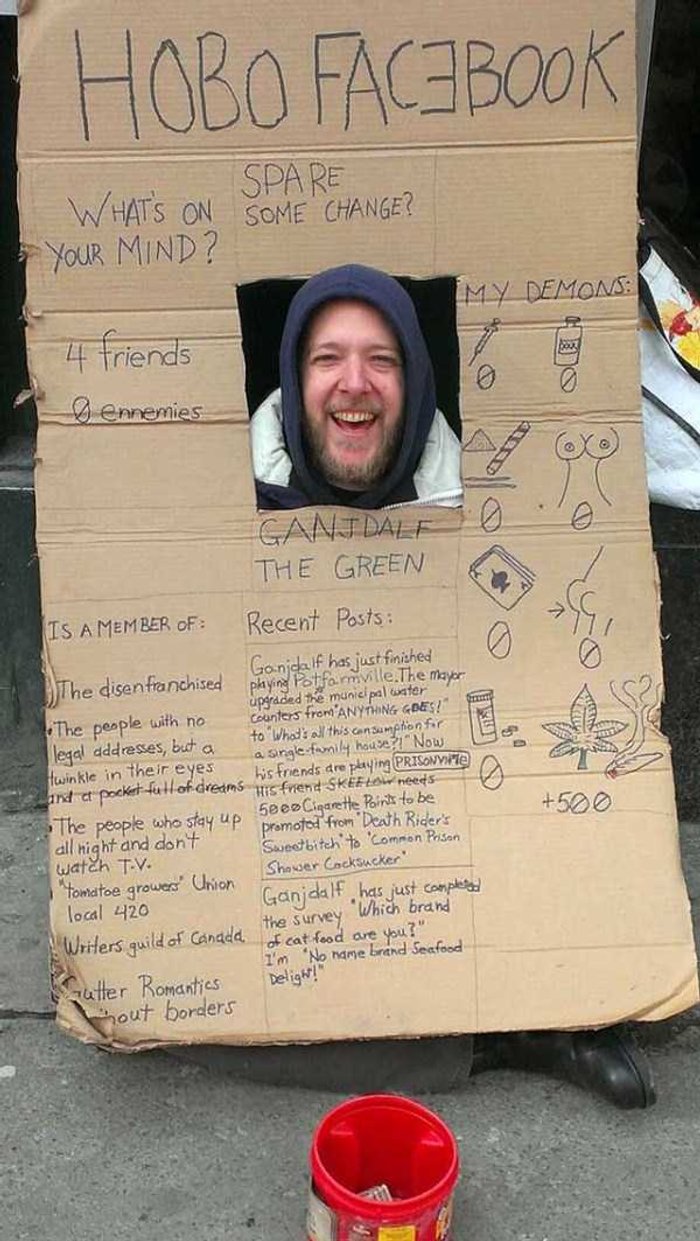 HOBO FACEBOOK
WHAT'S ON
YOUR MIND?
SPARE
SOME CHANGE?
4 friends
0 ennemies
MY DEMONS:
0 0
0 0
0 0
0
+500
GANJDALF
THE GREEN
IS A MEMBER OF:
The disenfranchised
•The people with no
legal addresses, but a
twinkle in their eyes
and a pocket full of dreams
•The people who stay up
all night and don't
watch T.V.
"tomatoe growers" Union
local 420
Writers guild of Canada
Gutter Romantics
out borders
Recent Posts:
Ganjdalf has just finished
playing Potfarmville. The mayor
upgraded the municipal water
counters from "ANYTHING GOES!"
to "What's all this consumption for
a single-family house?!" Now
his friends are playing PRISONVILLE
His friend SKEELOW needs
5000 Cigarette Points to be
promoted from "Death Rider's
Sweetbitch" to "Common Prison
Shower Cocksucker"
Ganjdalf has just completed
the survey "Which brand
of cat food are you?"
I'm "No name brand Seafood
Delight!"